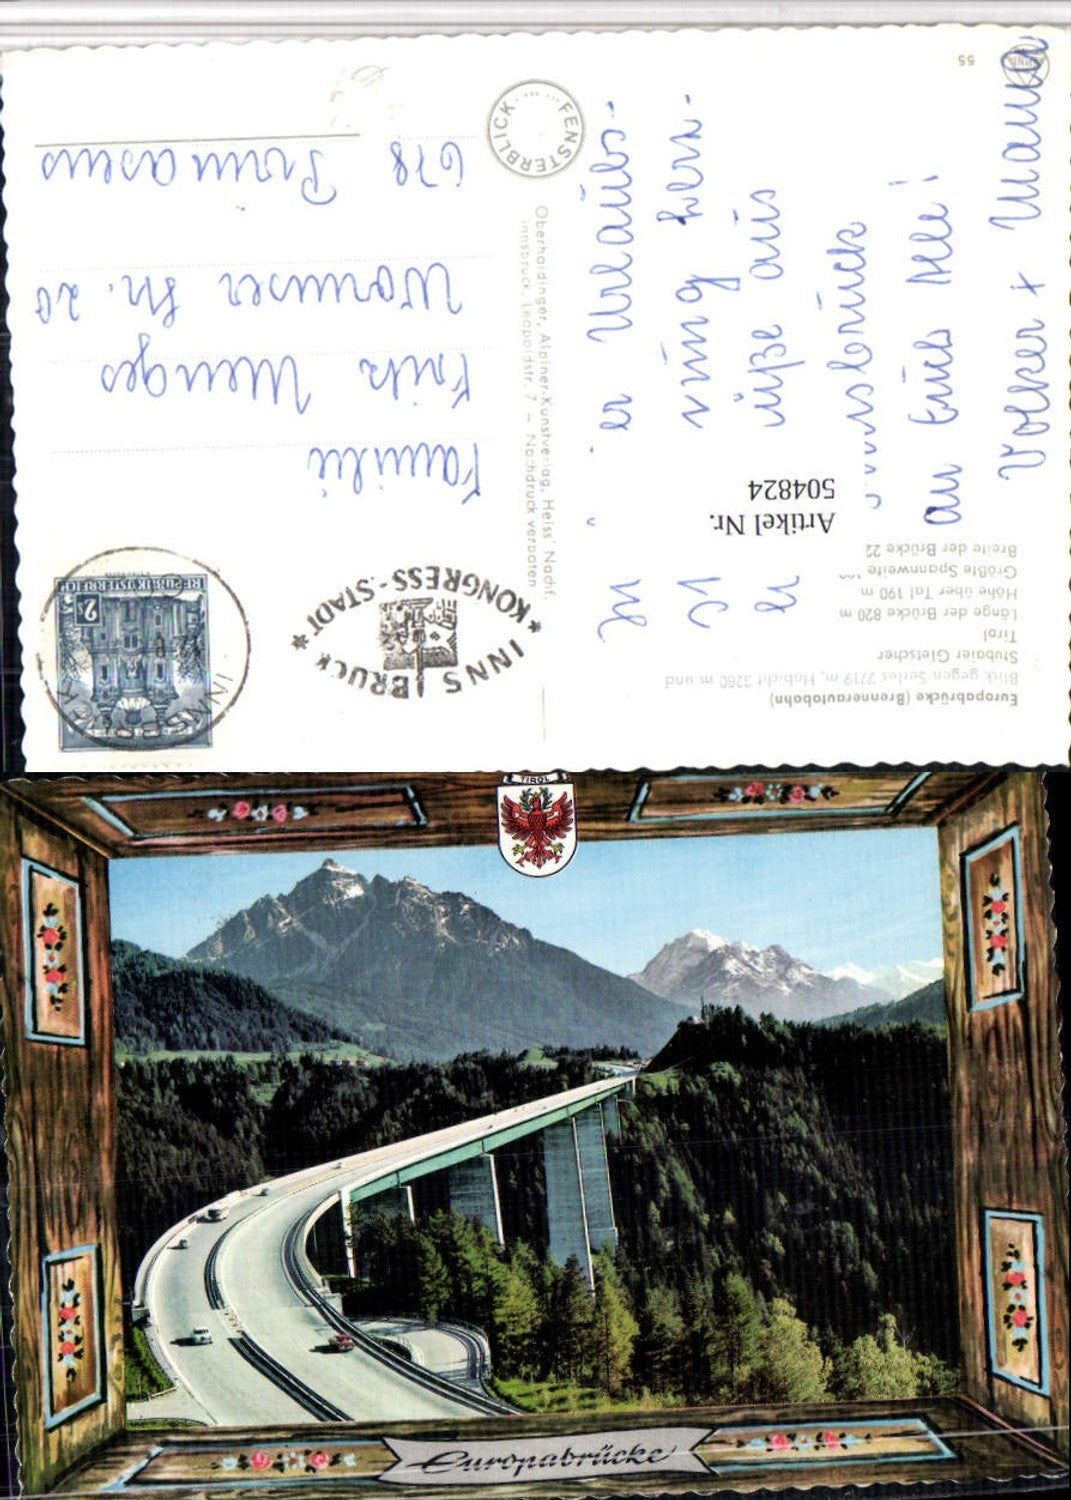 Europabrücke (Brennerautobahn)
Blick gegen Serles 2719 m, Habicht 3280 m und
Stubaier Gletscher
Tirol
Länge der Brücke 820 m
Höhe über Tal 190 m
Größte Spannweite
Breite der Brücke 22
Artikel Nr.
504824
er Urlaubs-
mung herz-
üße aus
nnsbrück
an Euch alle!
Volker + Mama
FENSTERBLICK
Oberhaidinger, Alpiner-Kunstverlag, Heiss' Nachf.
Innsbruck, Leopoldstr. 7 – Nachdruck verboten
55
INNSBRUCK
* KONGRESS-STADT *
REPUBLIK ÖSTERREICH
2 S
INNSBRUCK
Familie
Fritz Menges
Wormser Str. 20
678 Pirmasens
TIROL
Europabrücke